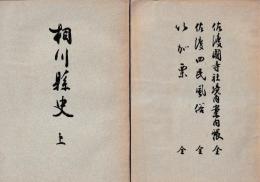 佐渡国寺社境内案内帳 全
佐渡四民風俗 全
いが栗 全
相川縣史 上